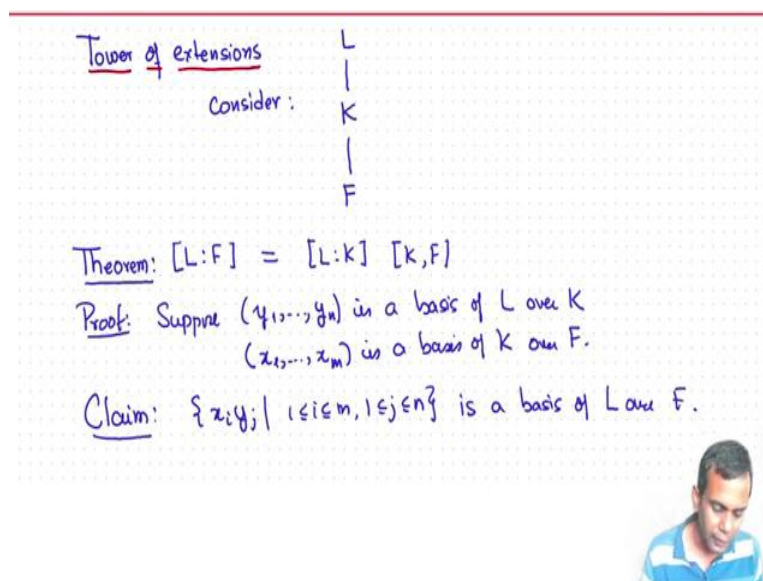 Tower of extensions
L
|
Consider: K
|
F
Theorem: [L:F] = [L:K] [K,F]
Proof: Suppose (y₁,..., yₙ) is a basis of L over K
(x₁,..., xₘ) is a basis of K over F.
Claim: {xᵢyⱼ | 1≤i≤m, 1≤j≤n} is a basis of L over F.